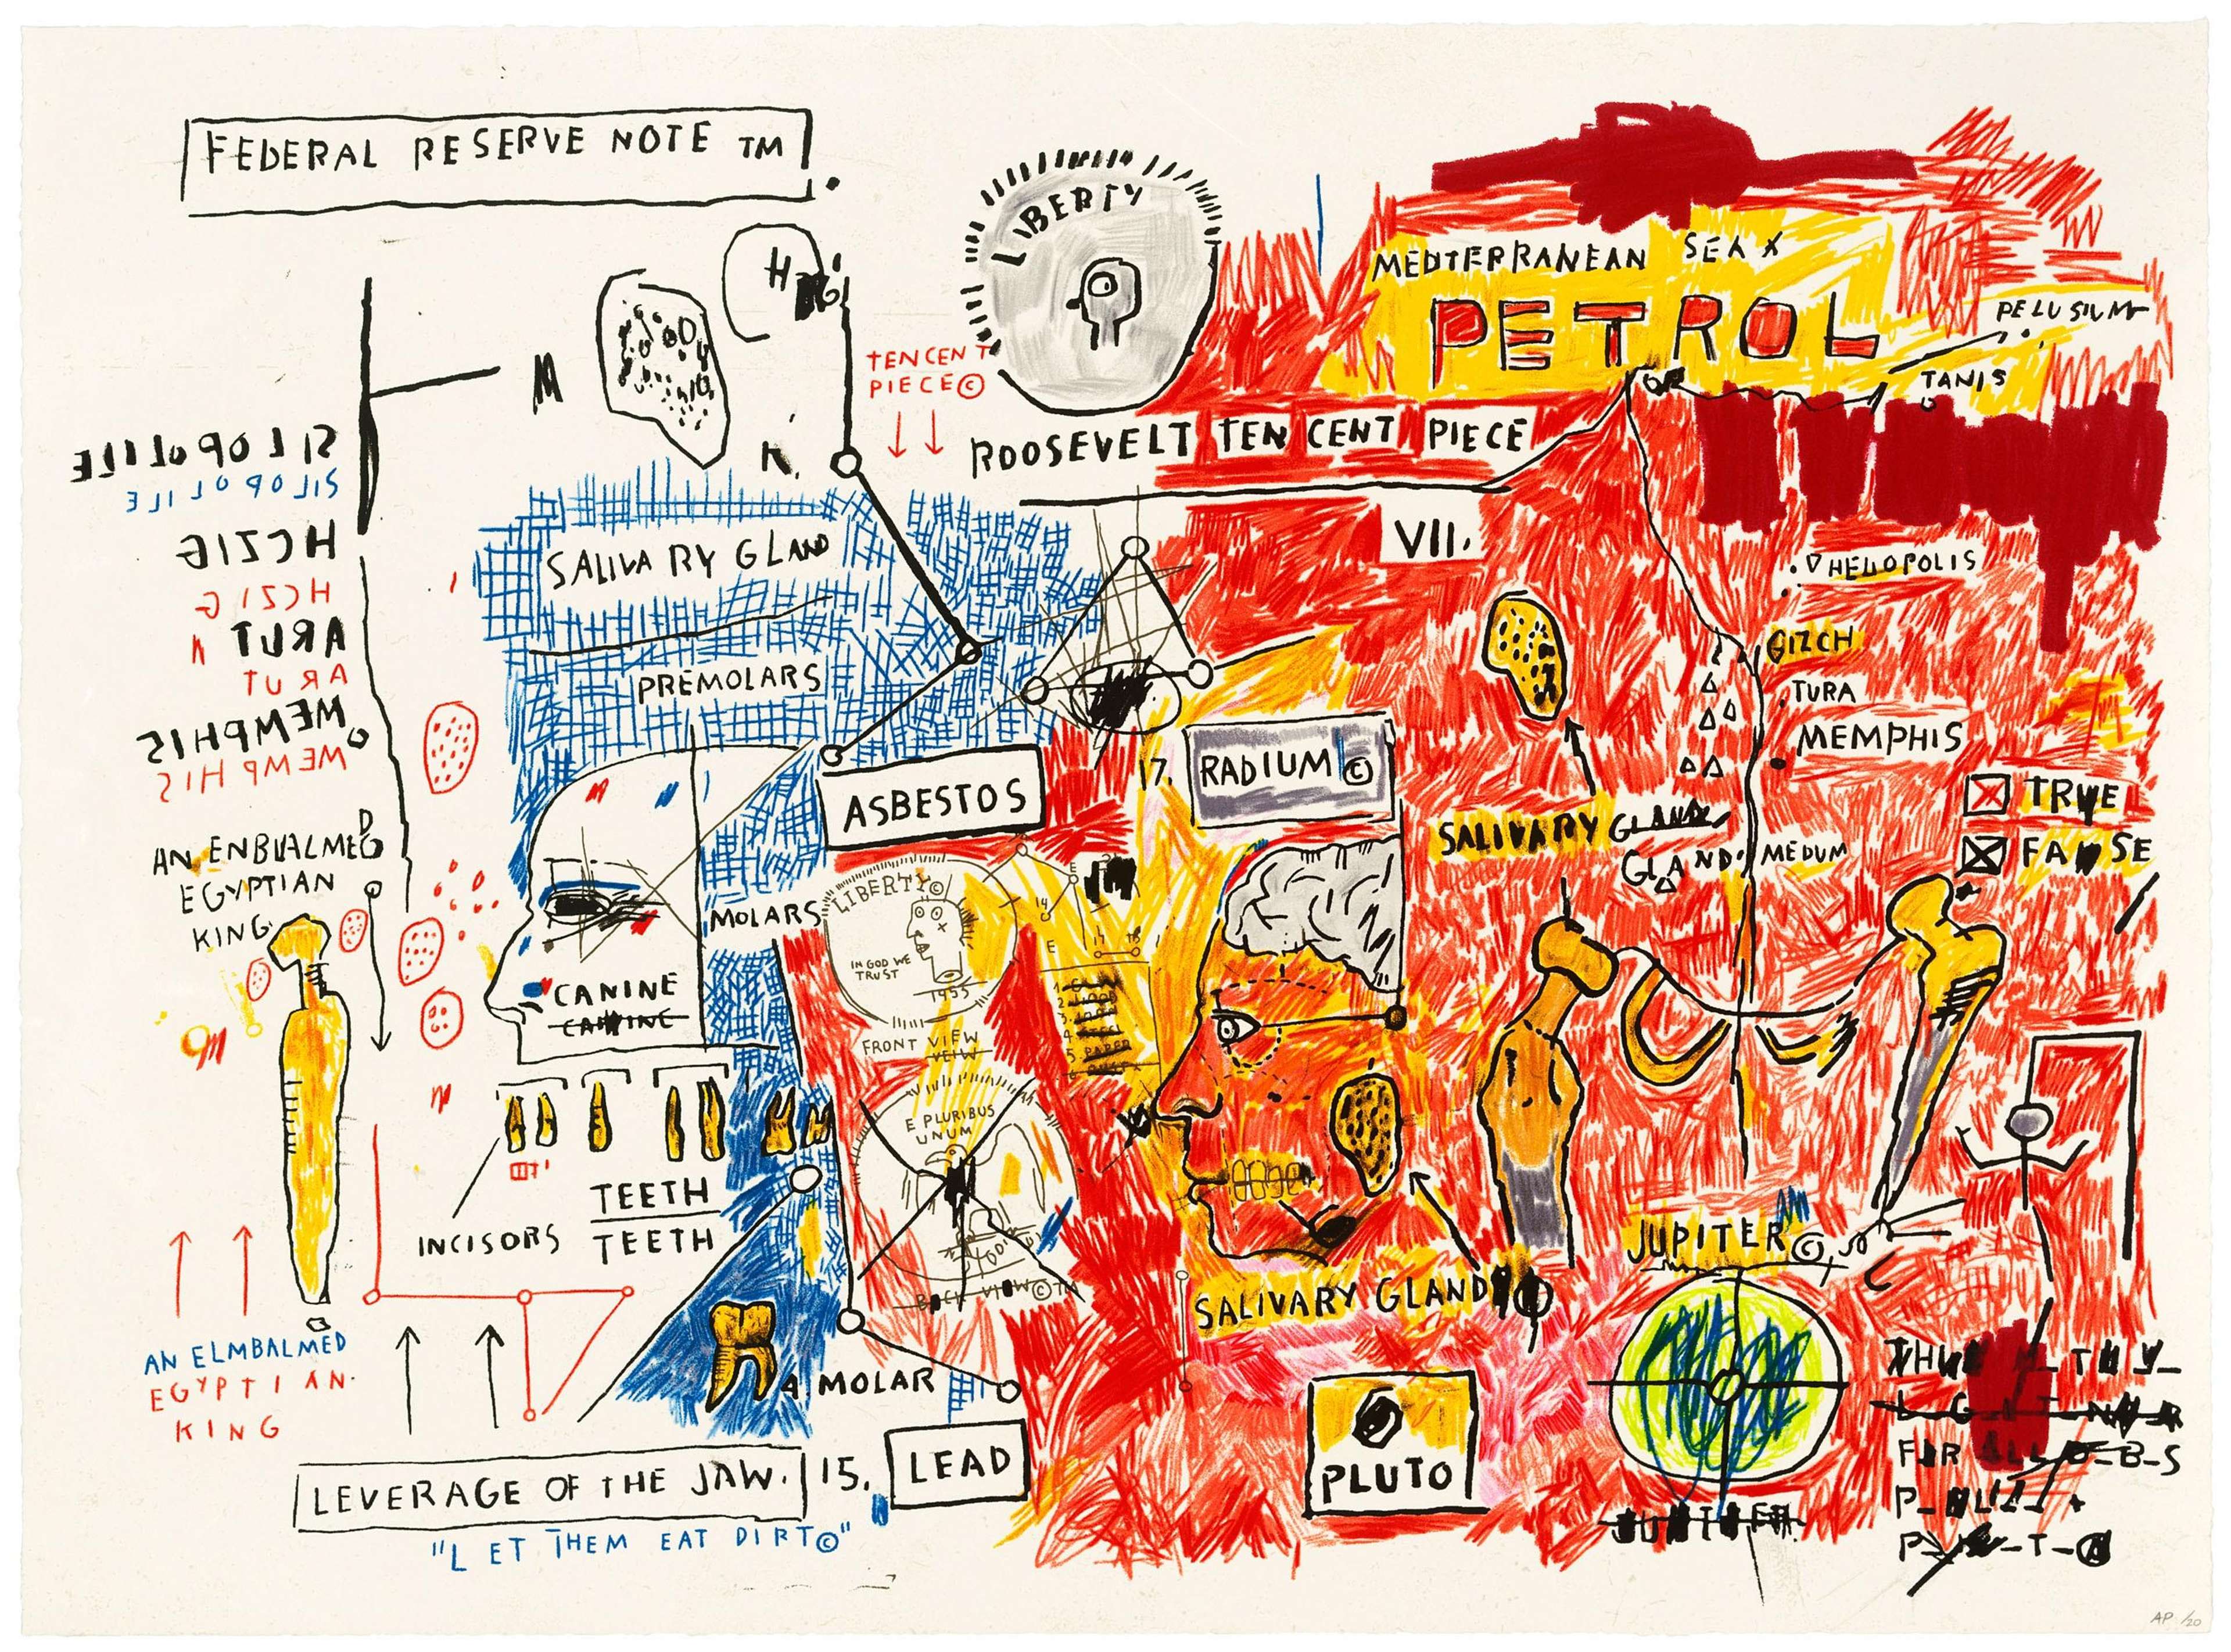 FEDERAL RESERVE NOTE TM
LIBERTY
TEN CENT
PIECE©
ROOSEVELT TEN CENT PIECE
MEDTERRANEAN SEA
PETROL
PELUSIUM
TANIS
VII.
HELIOPOLIS
GIZCH
TURA
MEMPHIS
MEDUM
SILOPOLILE
SILOPOLILE
HCZIG
HCZIG
ARUT
ARUT
MEMPHIS
MEMPHIS
SALIVARY GLAND
PREMOLARS
ASBESTOS
17. RADIUM©
SALIVARY GLAND
GLAND
TRUE
FALSE
AN ENBALMED
EGYPTIAN
KING
CANINE
CANINE
MOLARS
LIBERTY©
IN GOD WE
TRUST
1955
FRONT VIEW
VEIW
5. PAPER
E PLURIBUS
UNUM
BACK VIEW©TM
INCISORS
TEETH
TEETH
SALIVARY GLAND
JUPITER©
AN ELMBALMED
EGYPTIAN.
KING
A MOLAR
LEVERAGE OF THE JAW.
15. LEAD
"LET THEM EAT DIRT©"
PLUTO
JUPITER
AP /20